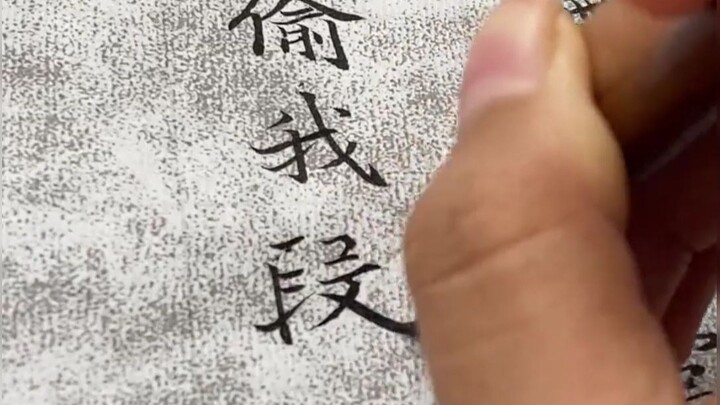 偷我段